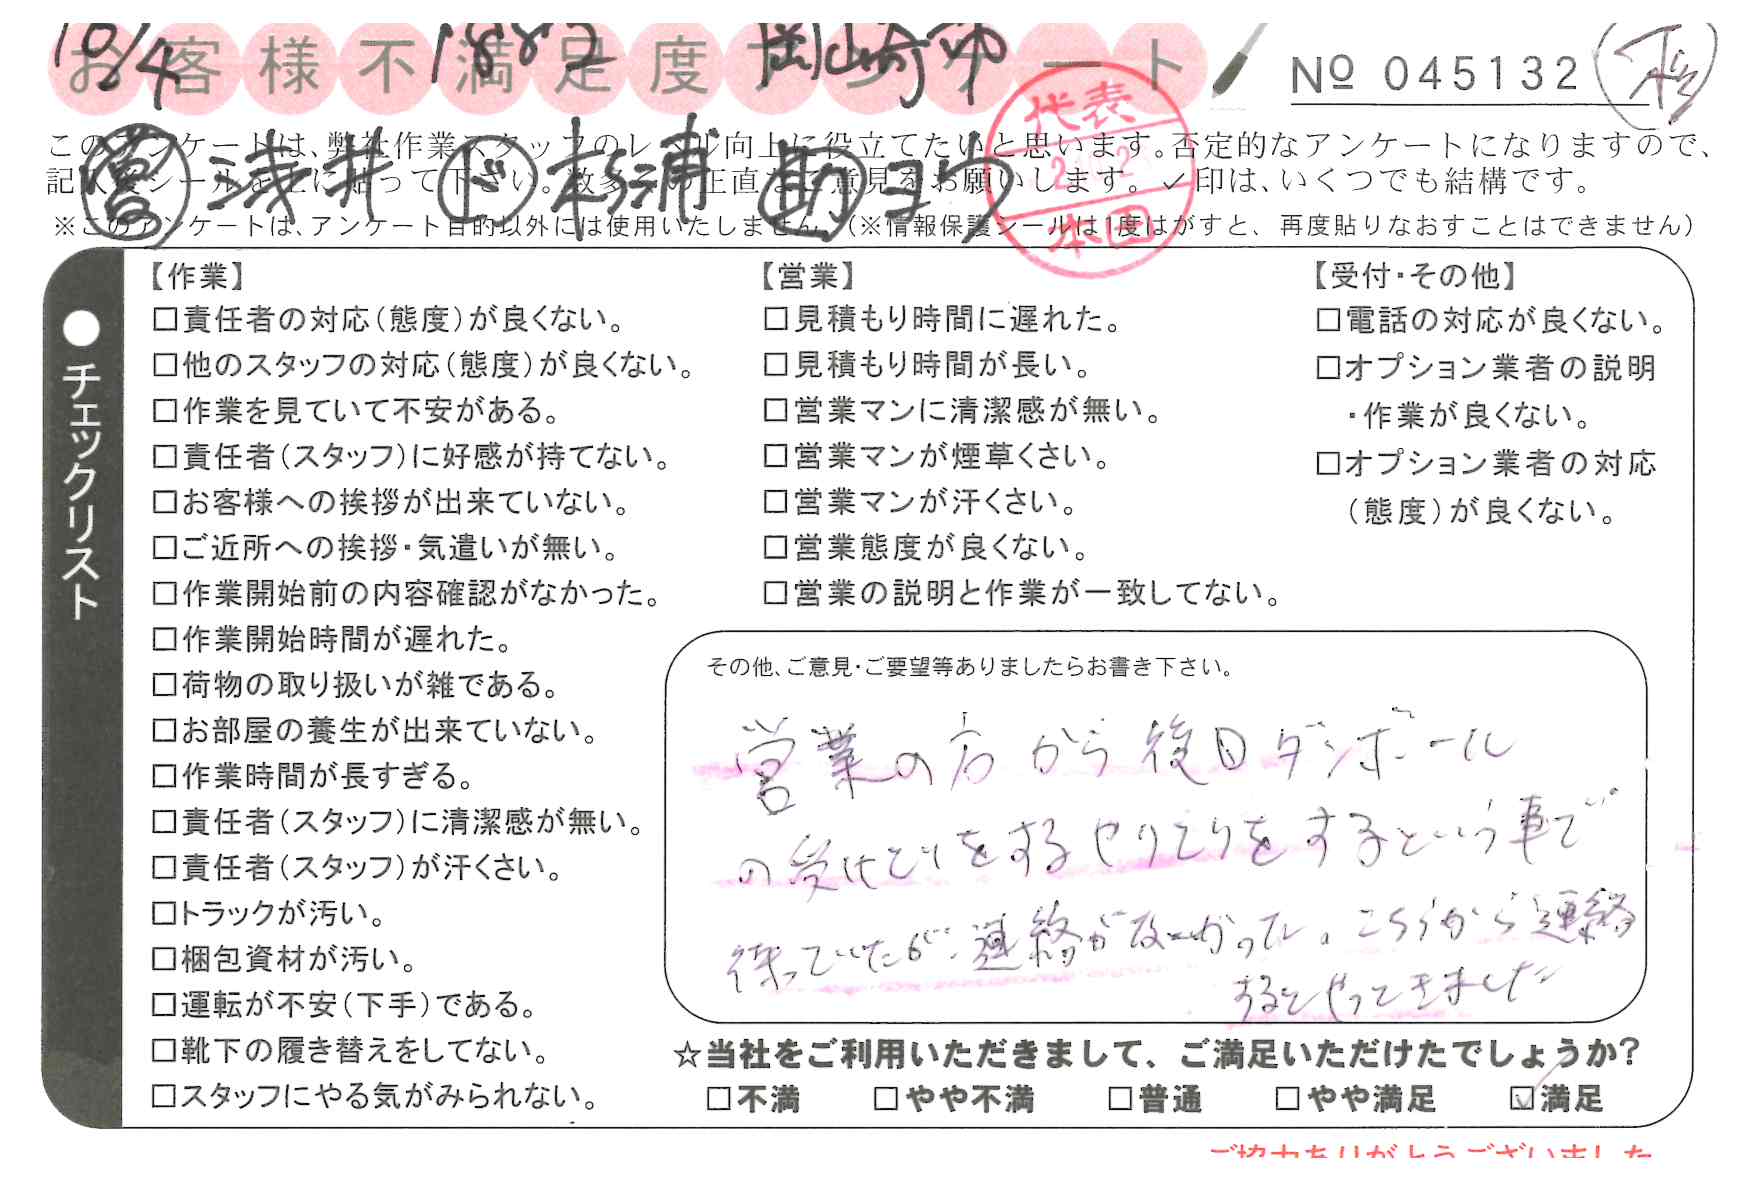 10/4 1882 岡崎市
お客様不満足度アンケート
№ 045132
このアンケートは、弊社作業スタッフのレベル向上に役立てたいと思います。否定的なアンケートになりますので、
記入後シールを上に貼って下さい。数多くの正直なご意見をお願いします。✓印は、いくつでも結構です。
※このアンケートは、アンケート目的以外には使用いたしません。(※情報保護シールは1度はがすと、再度貼りなおすことはできません)
営 浅井 ド 杉浦 助 ヨウ
代表
本田
●チェックリスト
【作業】
□責任者の対応(態度)が良くない。
□他のスタッフの対応(態度)が良くない。
□作業を見ていて不安がある。
□責任者(スタッフ)に好感が持てない。
□お客様への挨拶が出来ていない。
□ご近所への挨拶・気遣いが無い。
□作業開始前の内容確認がなかった。
□作業開始時間が遅れた。
□荷物の取り扱いが雑である。
□お部屋の養生が出来ていない。
□作業時間が長すぎる。
□責任者(スタッフ)に清潔感が無い。
□責任者(スタッフ)が汗くさい。
□トラックが汚い。
□梱包資材が汚い。
□運転が不安(下手)である。
□靴下の履き替えをしてない。
□スタッフにやる気がみられない。
【営業】
□見積もり時間に遅れた。
□見積もり時間が長い。
□営業マンに清潔感が無い。
□営業マンが煙草くさい。
□営業マンが汗くさい。
□営業態度が良くない。
□営業の説明と作業が一致してない。
【受付・その他】
□電話の対応が良くない。
□オプション業者の説明
・作業が良くない。
□オプション業者の対応
(態度)が良くない。
その他、ご意見・ご要望等ありましたらお書き下さい。
営業の方から後日ダンボール
の受けとりをするやりとりをするという事で
待っていたが、連絡がなかった。こちらから連絡
するとやってきました
☆当社をご利用いただきまして、ご満足いただけたでしょうか?
□不満 □やや不満 □普通 □やや満足 ☑満足
ご協力ありがとうございました